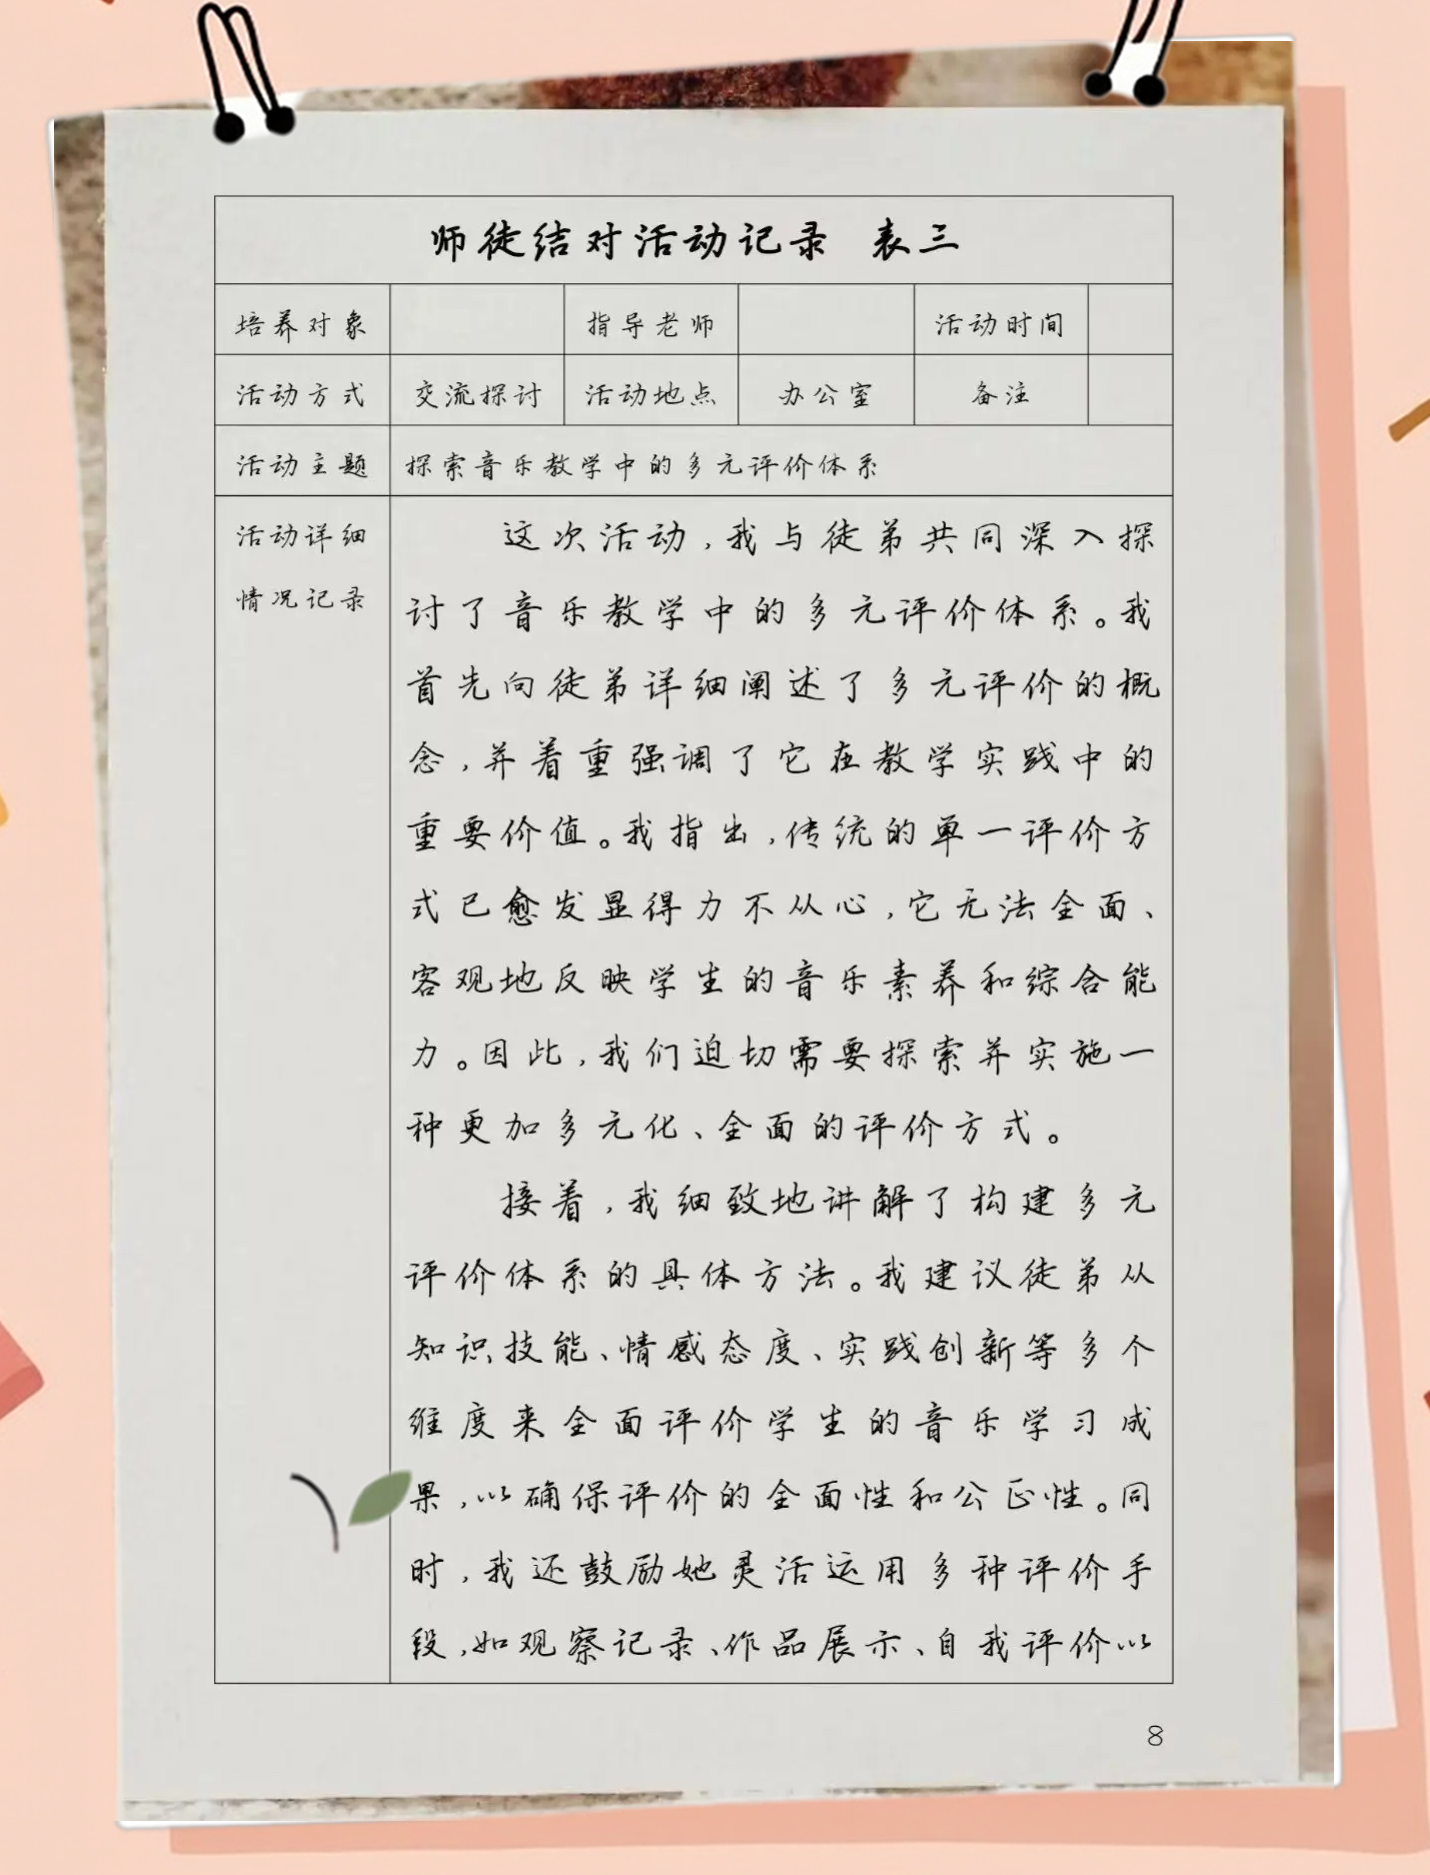 师徒结对活动记录 表三
培养对象 指导老师 活动时间
活动方式 交流探讨 活动地点 办公室 备注
活动主题 探索音乐教学中的多元评价体系
活动详细
情况记录
这次活动,我与徒弟共同深入探
讨了音乐教学中的多元评价体系。我
首先向徒弟详细阐述了多元评价的概
念,并着重强调了它在教学实践中的
重要价值。我指出,传统的单一评价方
式已愈发显得力不从心,它无法全面、
客观地反映学生的音乐素养和综合能
力。因此,我们迫切需要探索并实施一
种更加多元化、全面的评价方式。
接着,我细致地讲解了构建多元
评价体系的具体方法。我建议徒弟从
知识技能、情感态度、实践创新等多个
维度来全面评价学生的音乐学习成
果,以确保评价的全面性和公正性。同
时,我还鼓励她灵活运用多种评价手
段,如观察记录、作品展示、自我评价以
8